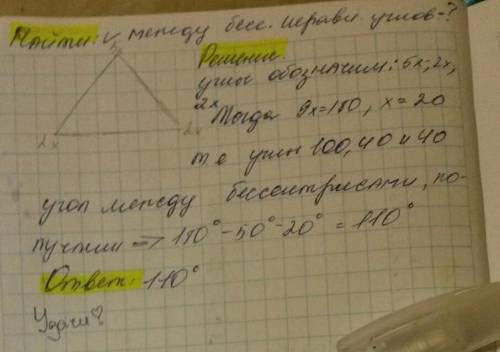 Найти: ∠ между бисс. неравн углов-?
5x
2x
2x
Решение.
углы обозначим: 5x; 2x;
2x Тогда 9x=180, x=20
т.е углы 100, 40 и 40
угол между биссектрисами, по-
лучим => 180°-50°-20° = 110°
Ответ: 110°
Удачи♡